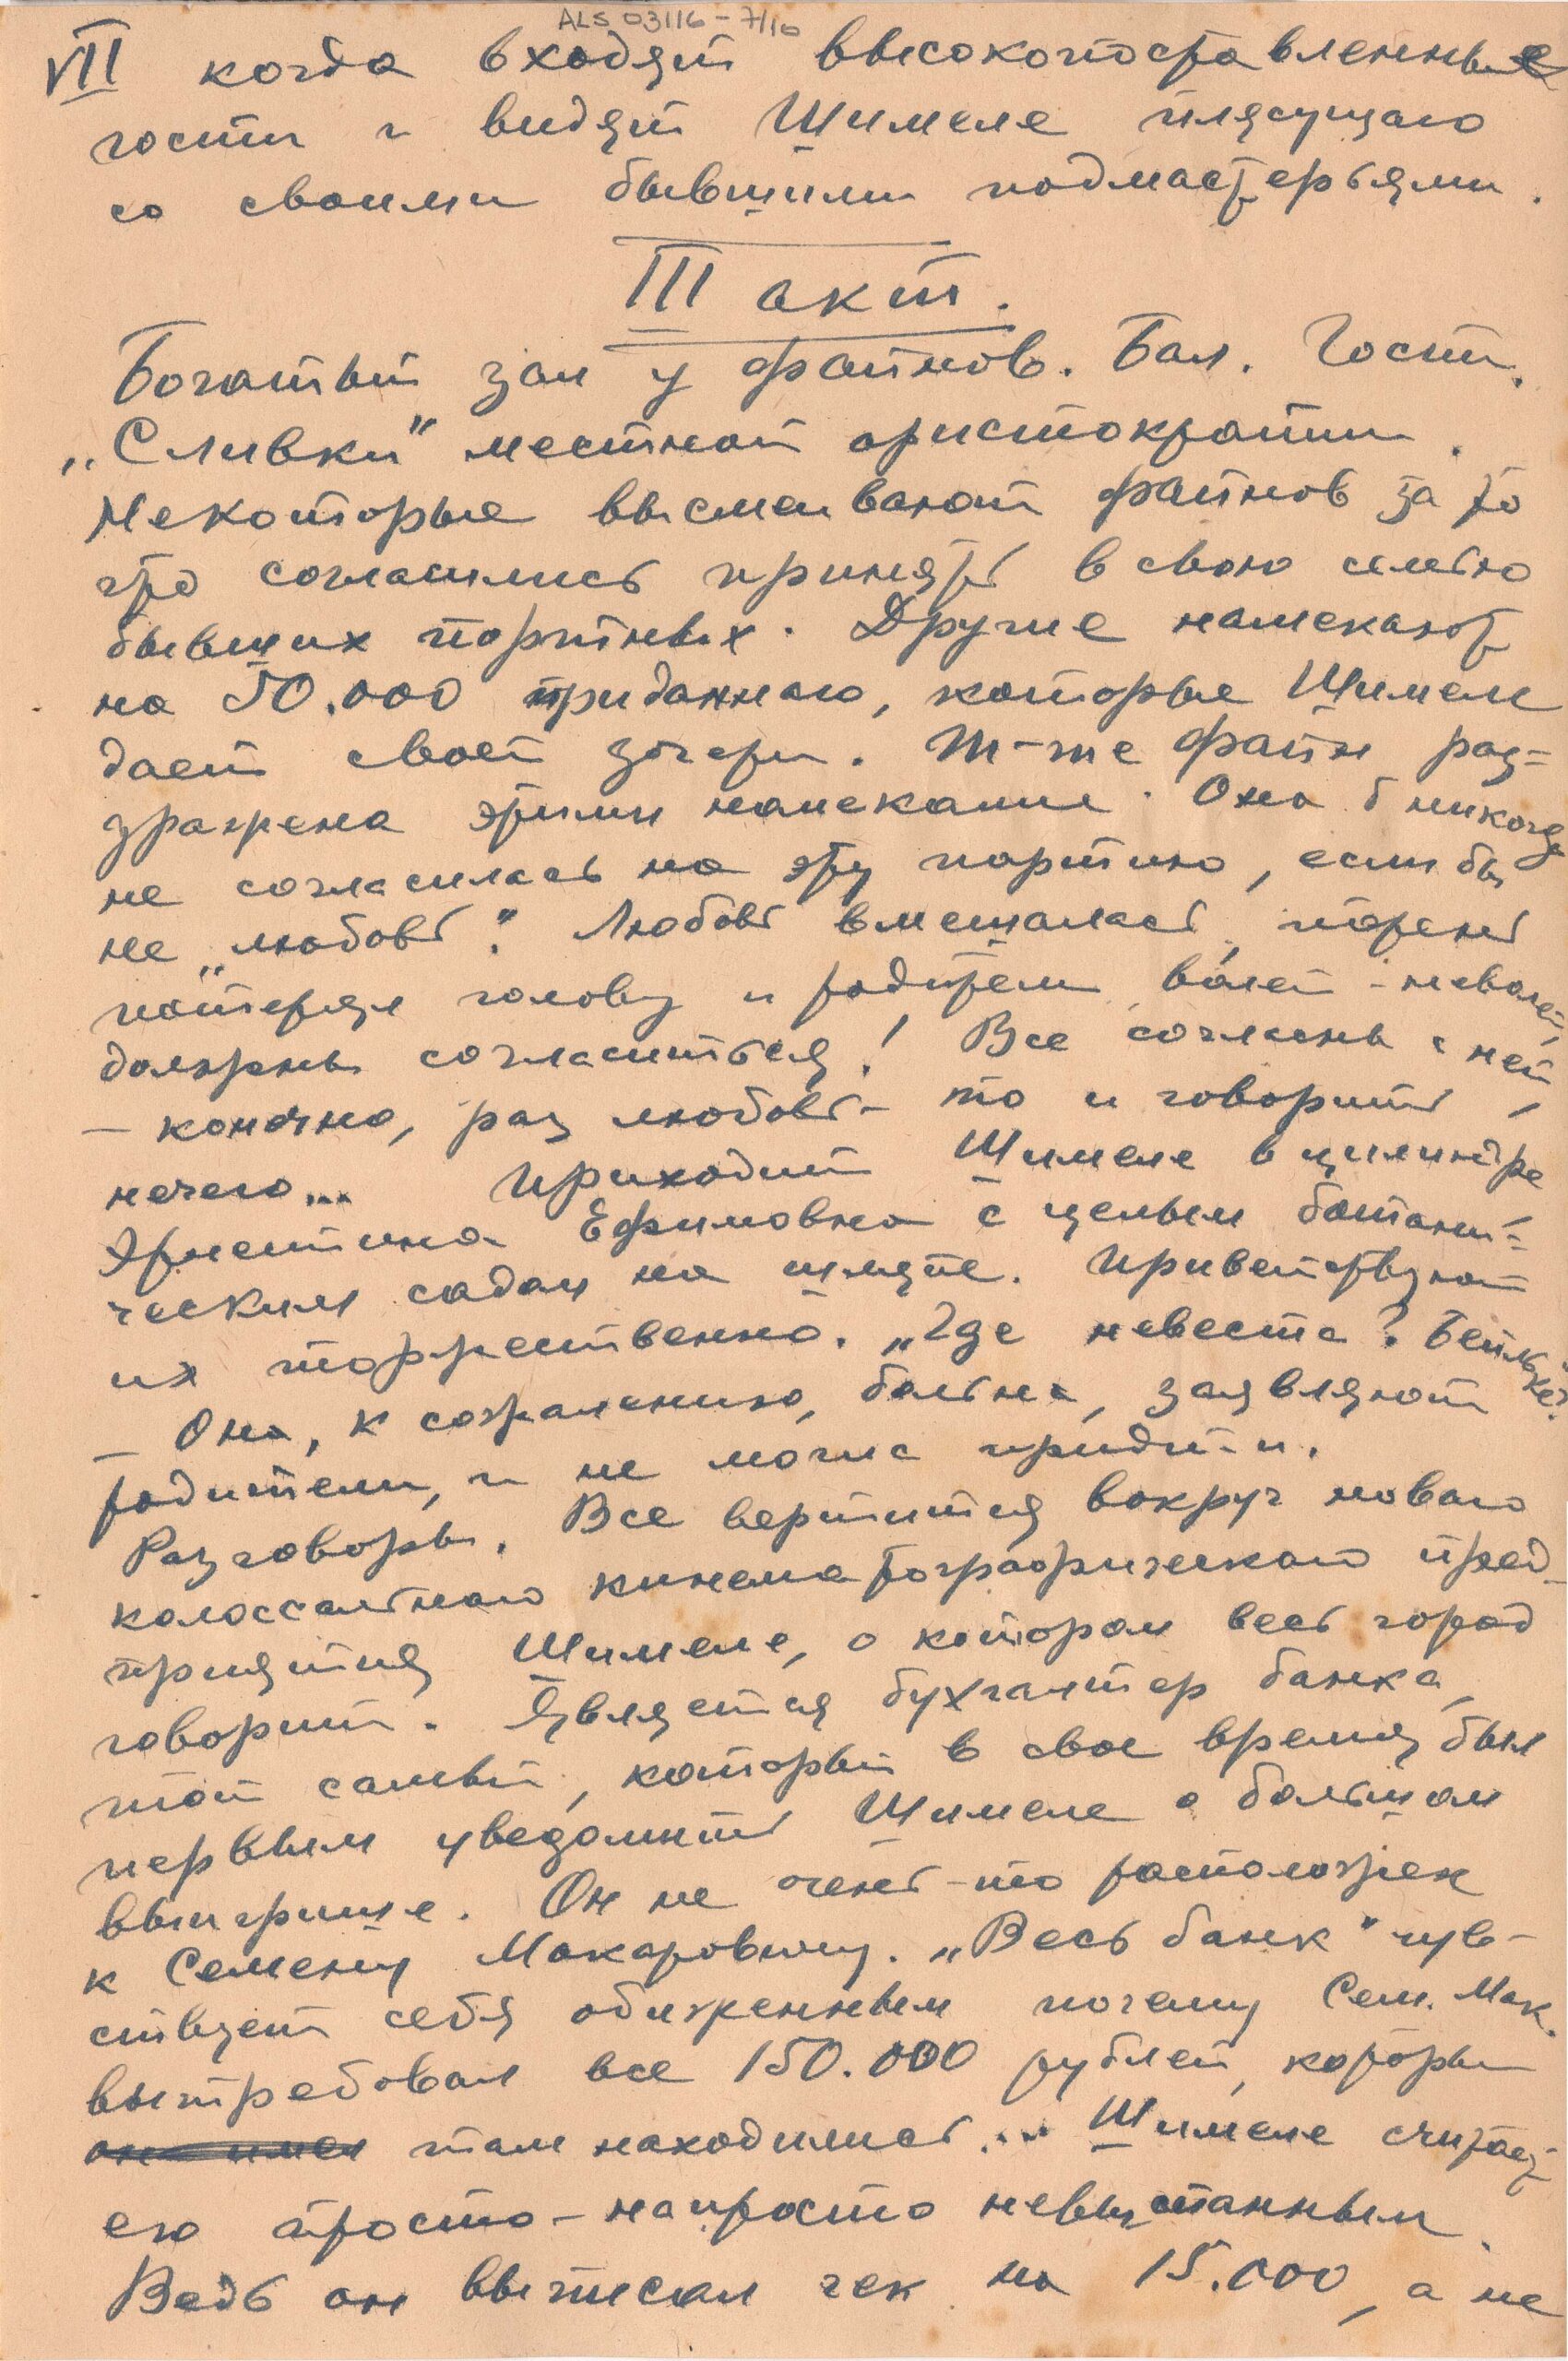 ALS 03116-7/10
VII когда входят высокопоставленные
гости и видят Шимеле пляшущаго
со своими бывшими подмастерьями.
III акт.
Богатый зал у Файнов. Бал. Гости.
„Сливки" местной аристократии.
Некоторые высмеивают Файнов за то
что согласились принять в свою семью
бывших портных. Другие намекают
на 50.000 приданнаго, которые Шимеле
дает своей дочери. М-me Файн раз-
дражена этими намеками. Она б никогда
не согласилась на эту партию, если бы
не „любовь". Любовь вмешалась, парень
потерял голову и родители, волей-неволей,
должны согласиться! Все согласны с ней
– конечно, раз любовь – то и говорить
нечего... Приходит Шимеле в цилиндре
Эрнестина Ефимовна с целым ботани-
ческим садом на шляпе. Приветствуют
их торжественно. „Где невеста? Бейльке?"
– Она, к сожалению, больна, заявляют
родители, и не могла придти.
Разговоры. Все вертится вокруг новаго
колоссальнаго кинематографическаго пред-
приятия Шимеле, о котором весь город
говорит. Является бухгалтер банка,
тот самый, который в свое время был
первым уведомить Шимеле о большом
выигрыше. Он не очень-то расположен
к Семену Макаровичу. „Весь банк" чув-
ствует себя обиженным почему Сем. Мак.
вытребовал все 150.000 рублей, которы
он имел там находились... Шимеле считает
его просто-напросто
Ведь он выписал чек на 15.000, а не